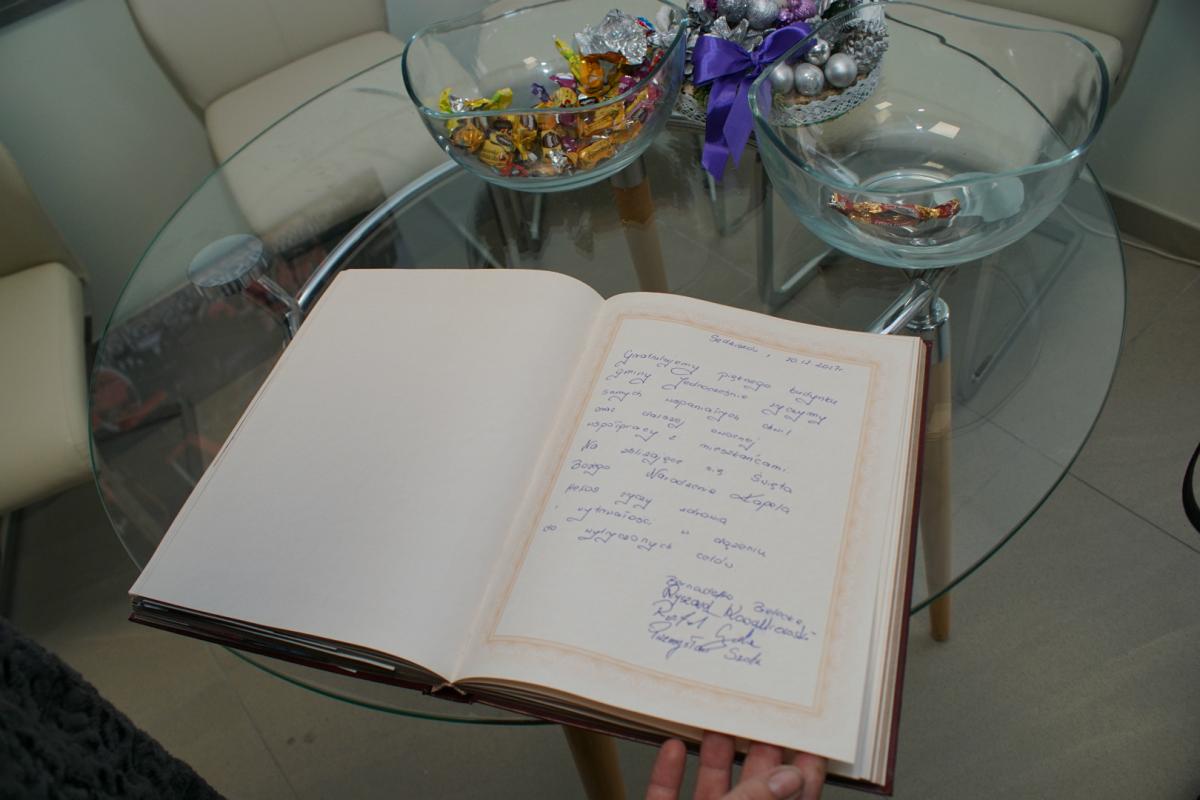 20.12.2017r
Gratulujemy pięknego budynku
gminy Jednocześnie życzymy
samych wspaniałych chwil
oraz dalszej owocnej
współpracy z mieszkańcami.
Na zbliżające się Święta
Bożego Narodzenia Kapela
życzy zdrowia
i wytrwałości w dążeniu
do wytyczonych celów
Bernadeta
Ryszard
Rafał
Przemysław